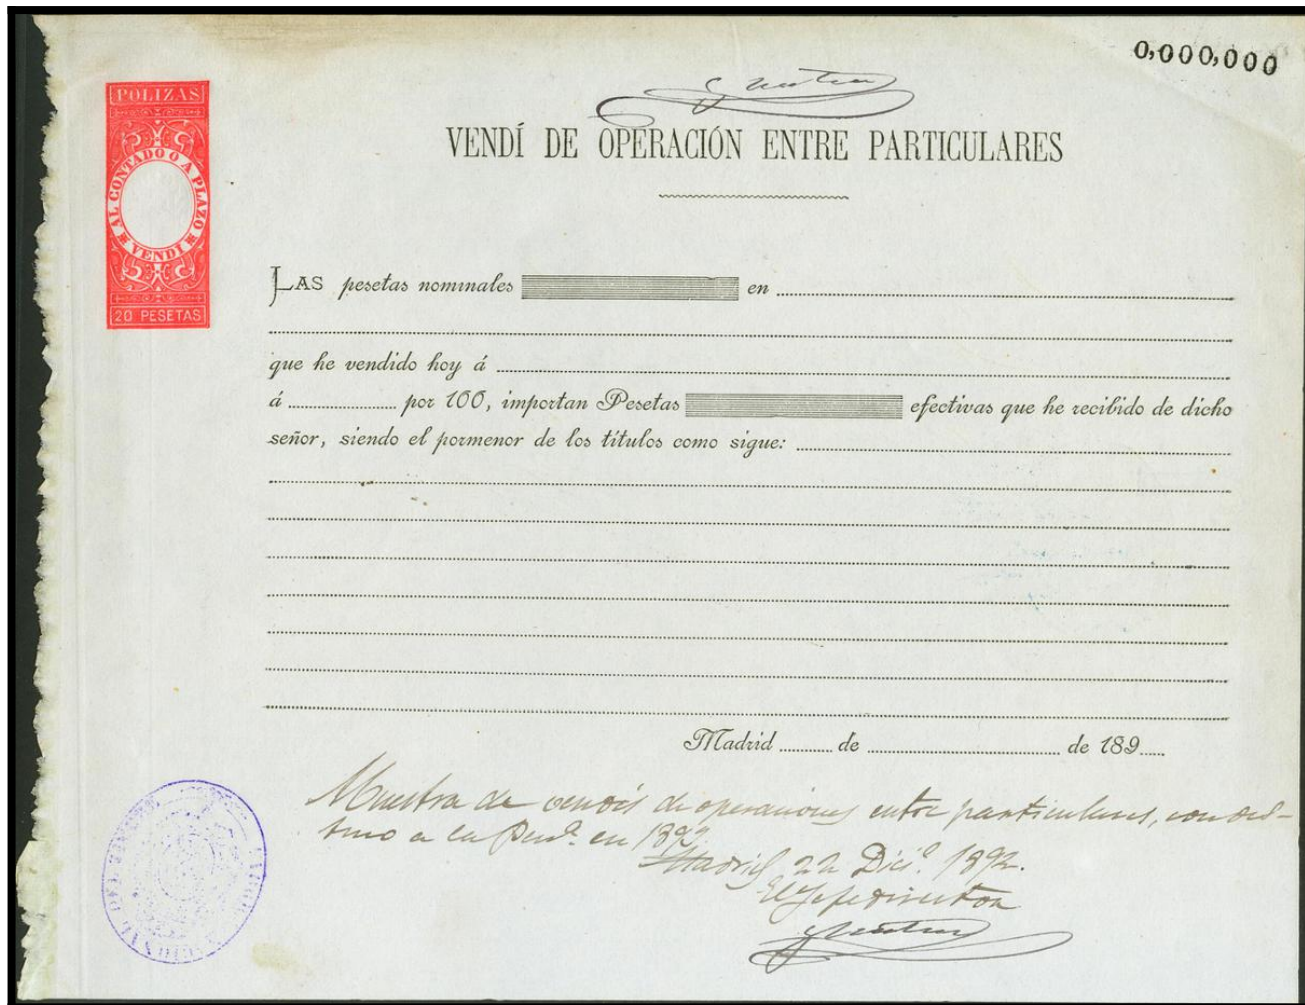 0,000,000
POLIZAS
AL CONTADO O A PLAZO
VENDI
20 PESETAS
VENDÍ DE OPERACIÓN ENTRE PARTICULARES
LAS pesetas nominales en
que he vendido hoy á
á por 100, importan Pesetas efectivas que he recibido de dicho
señor, siendo el pormenor de los títulos como sigue:
Madrid de de 189
Muestra de vendís de operaciones entre particulares, con des-
tino a la en 1892
Madrid 22 Dic.e 1892.
El Jefe